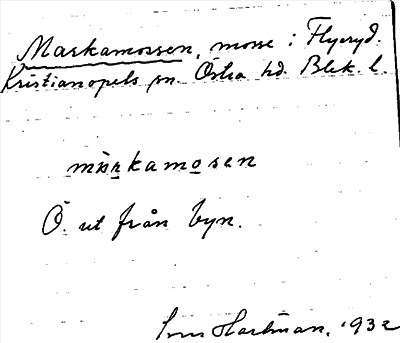 Markamossen, mosse i Flyeryd.
Kristianopels sn. Östra hd. Blek. l.
markamosen
Ö. ut från byn.
Hartman, 1932